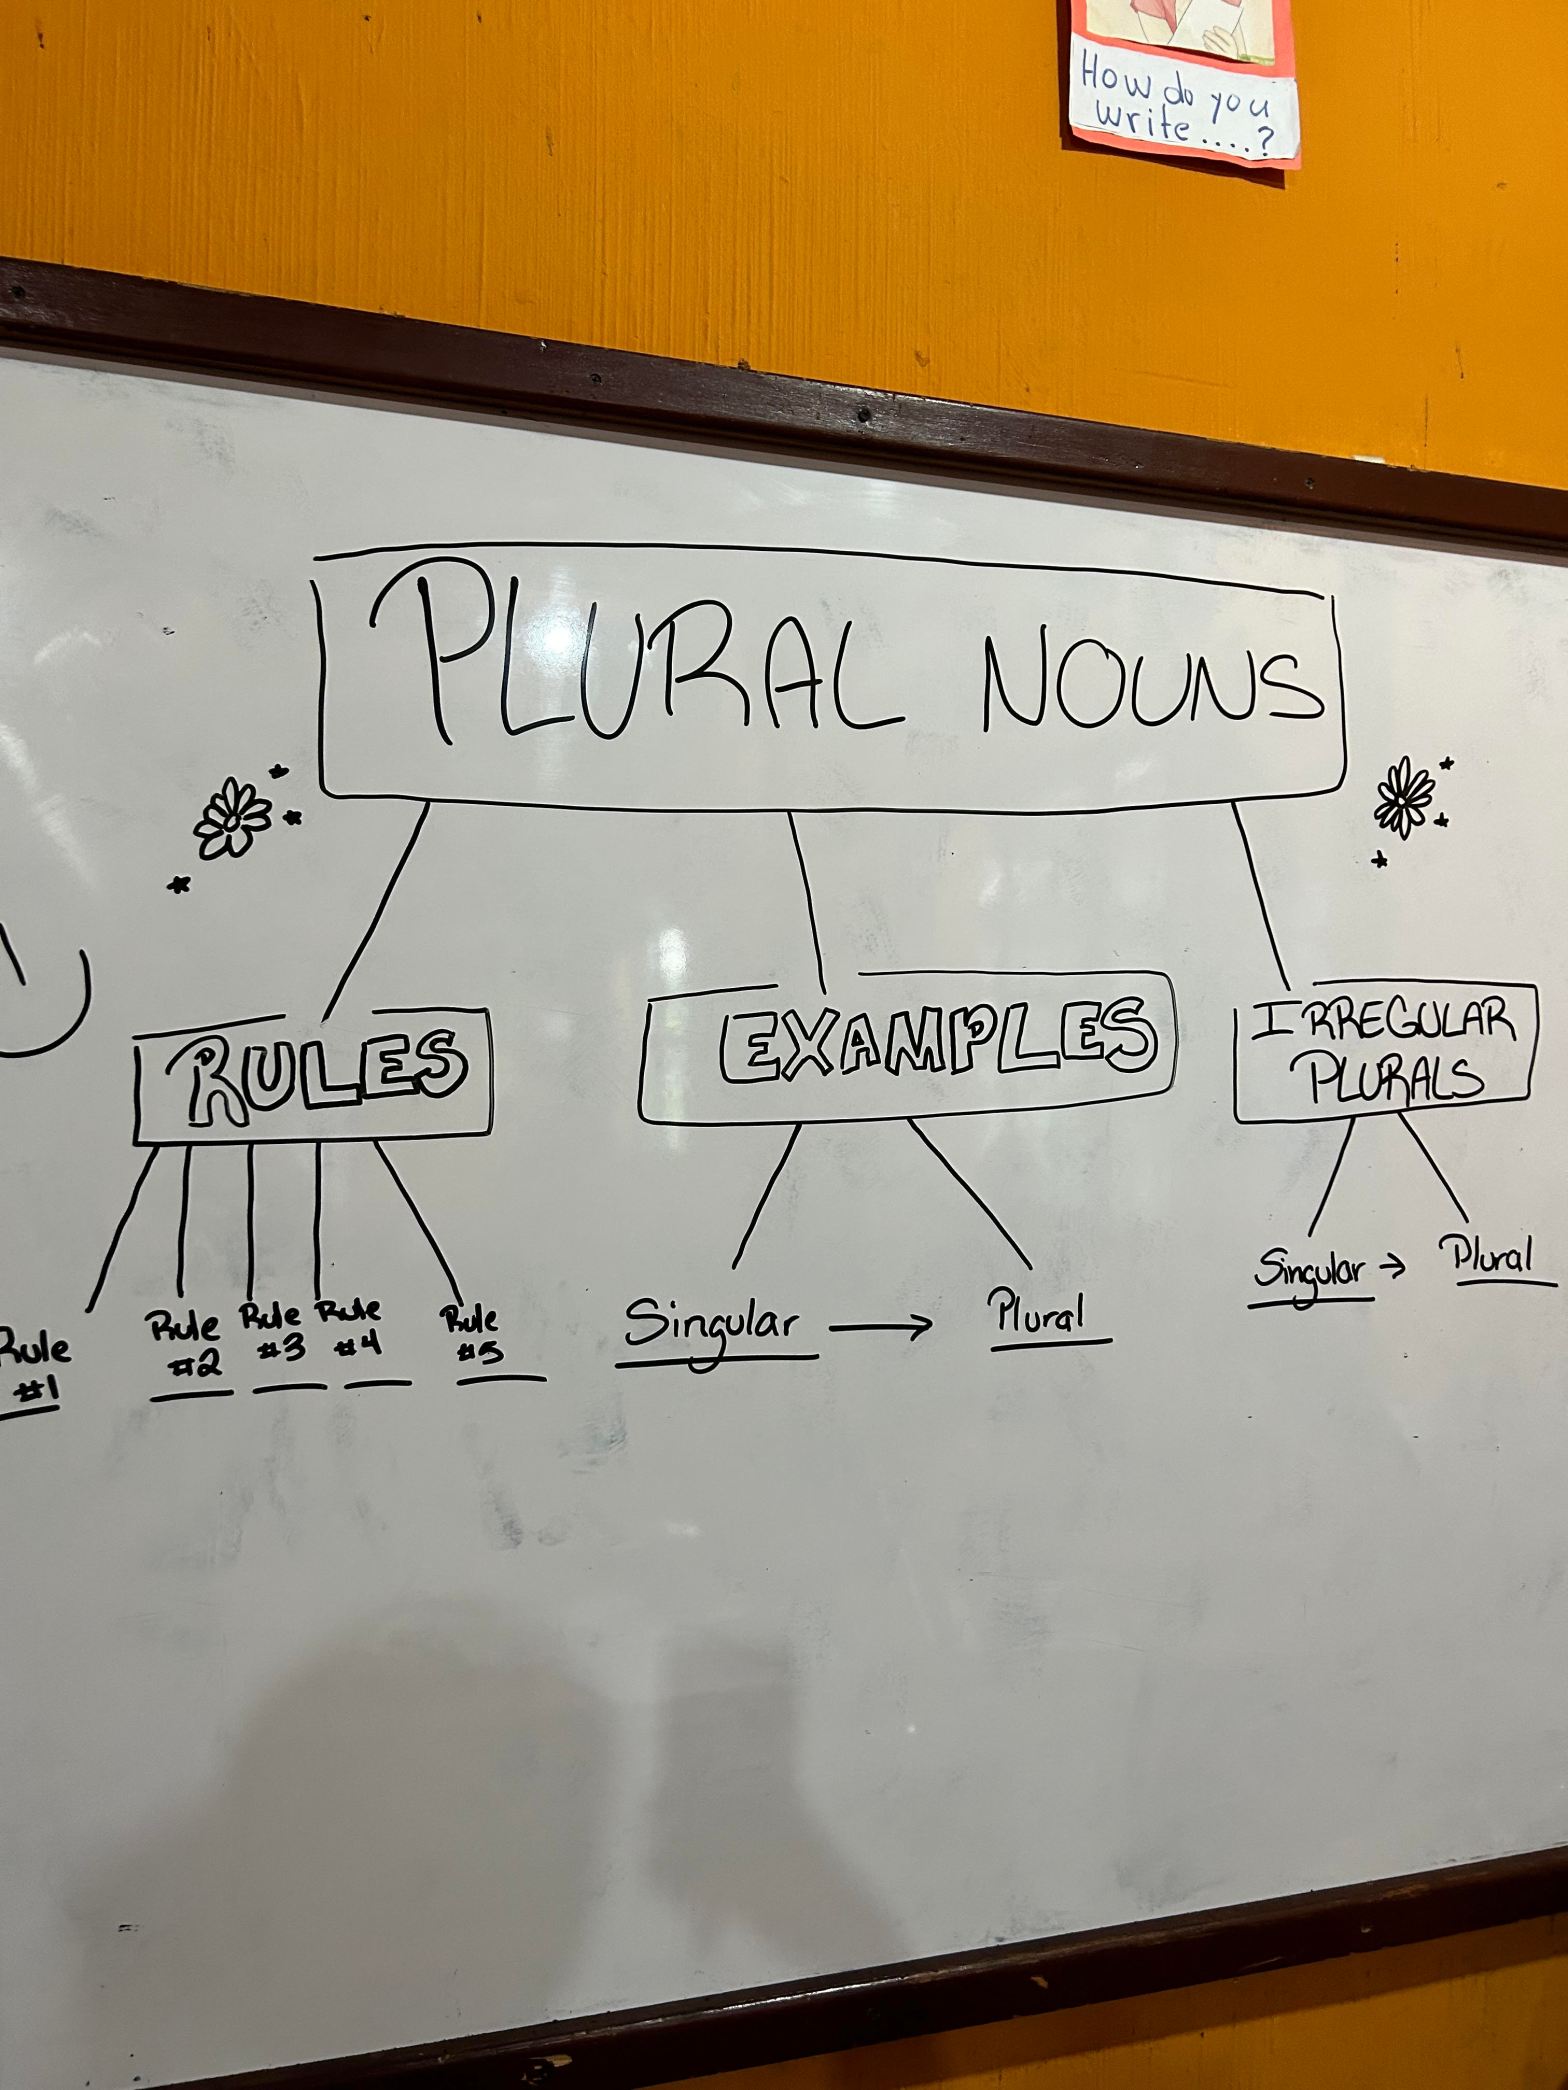 How do you
write....?
PLURAL NOUNS
RULES
EXAMPLES
IRREGULAR
PLURALS
Rule
#1
Rule
#2
Rule
#3
Rule
#4
Rule
#5
Singular → Plural
Singular → Plural